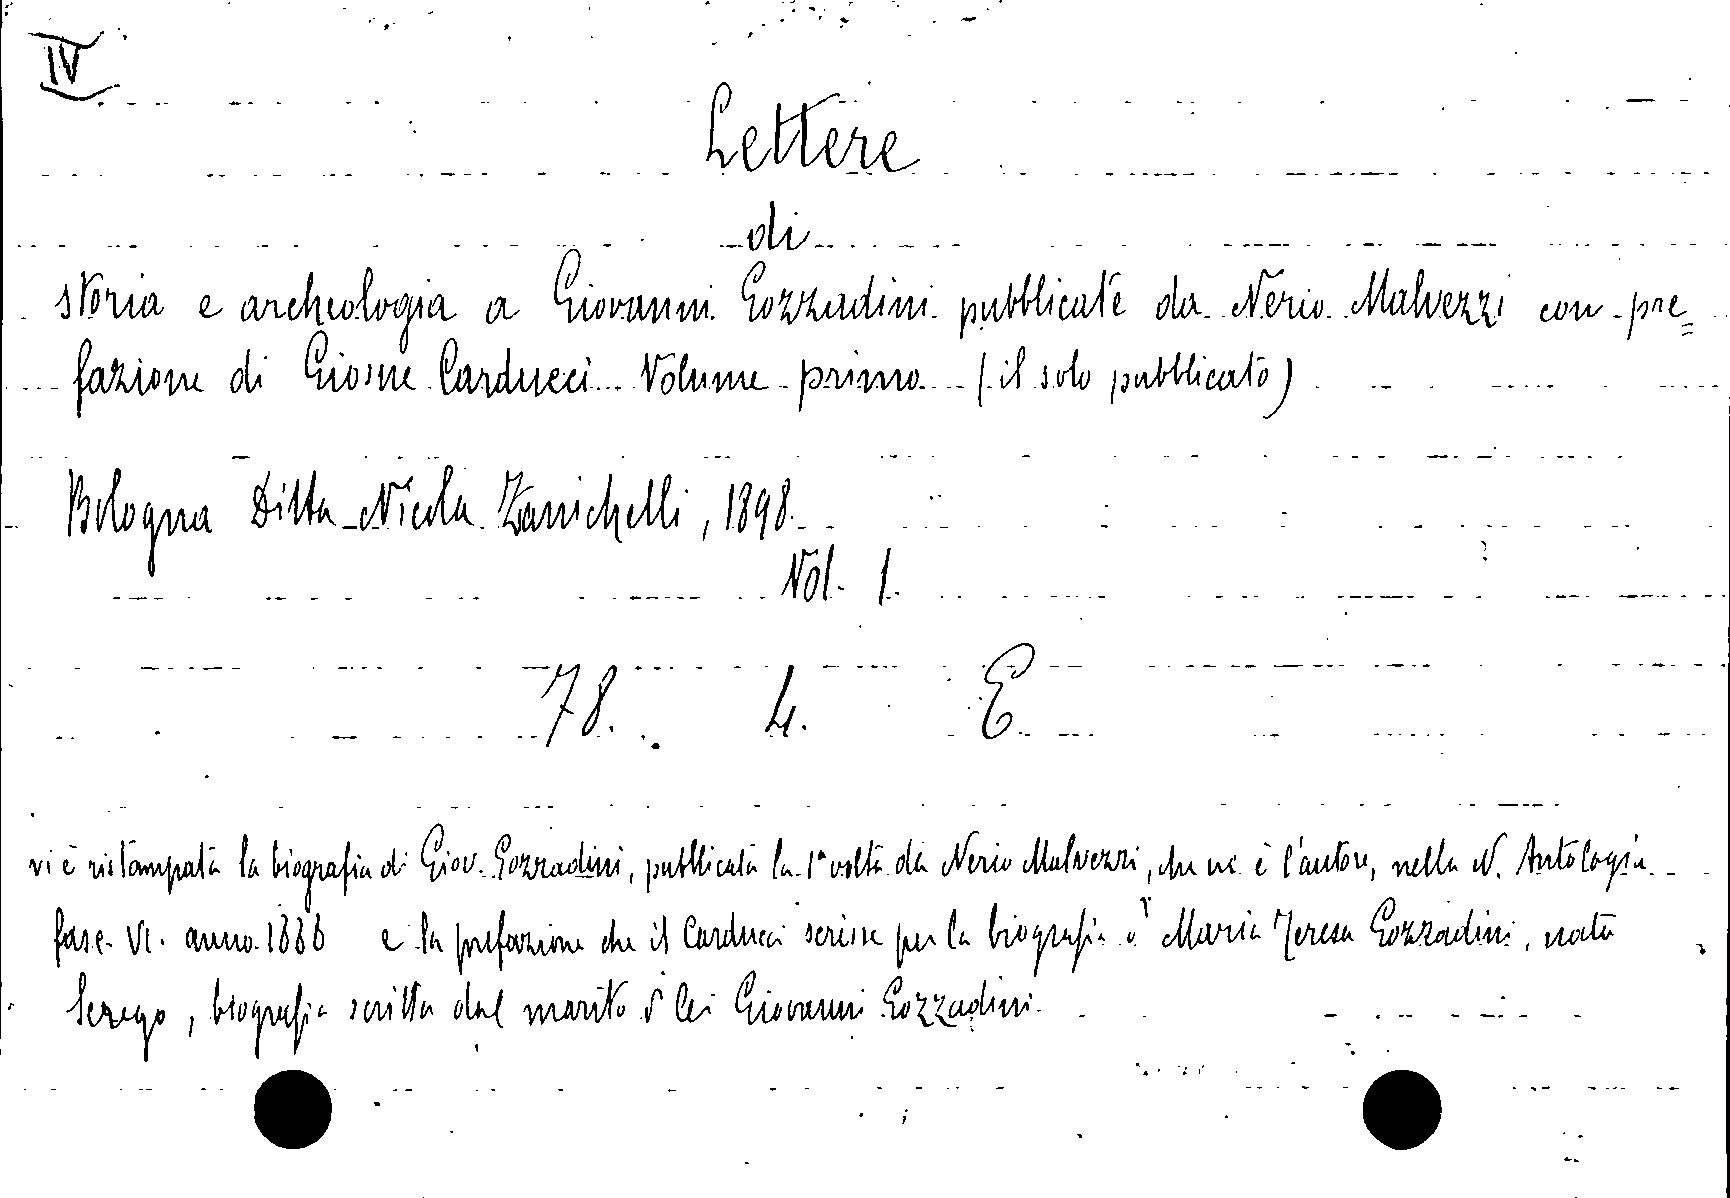 IV
Lettere
di
storia e archeologia a Giovanni Gozzadini pubblicate da Nerio Malvezzi con pre=
fazione di Giosue Carducci Volume primo (il solo pubblicato)
Bologna Ditta Nicola Zanichelli, 1898
Vol. 1.
78. 4. E
vi è ristampata la biografia di Giov. Gozzadini, pubblicata la 1ª volta da Nerio Malvezzi, che ne è l'autore, nella N. Antologia
fasc. VI. anno 1888 e la prefazione che il Carducci scrisse per la biografia di Maria Teresa Gozzadini, nata
Serego, biografia scritta dal marito di lei Giovanni Gozzadini.